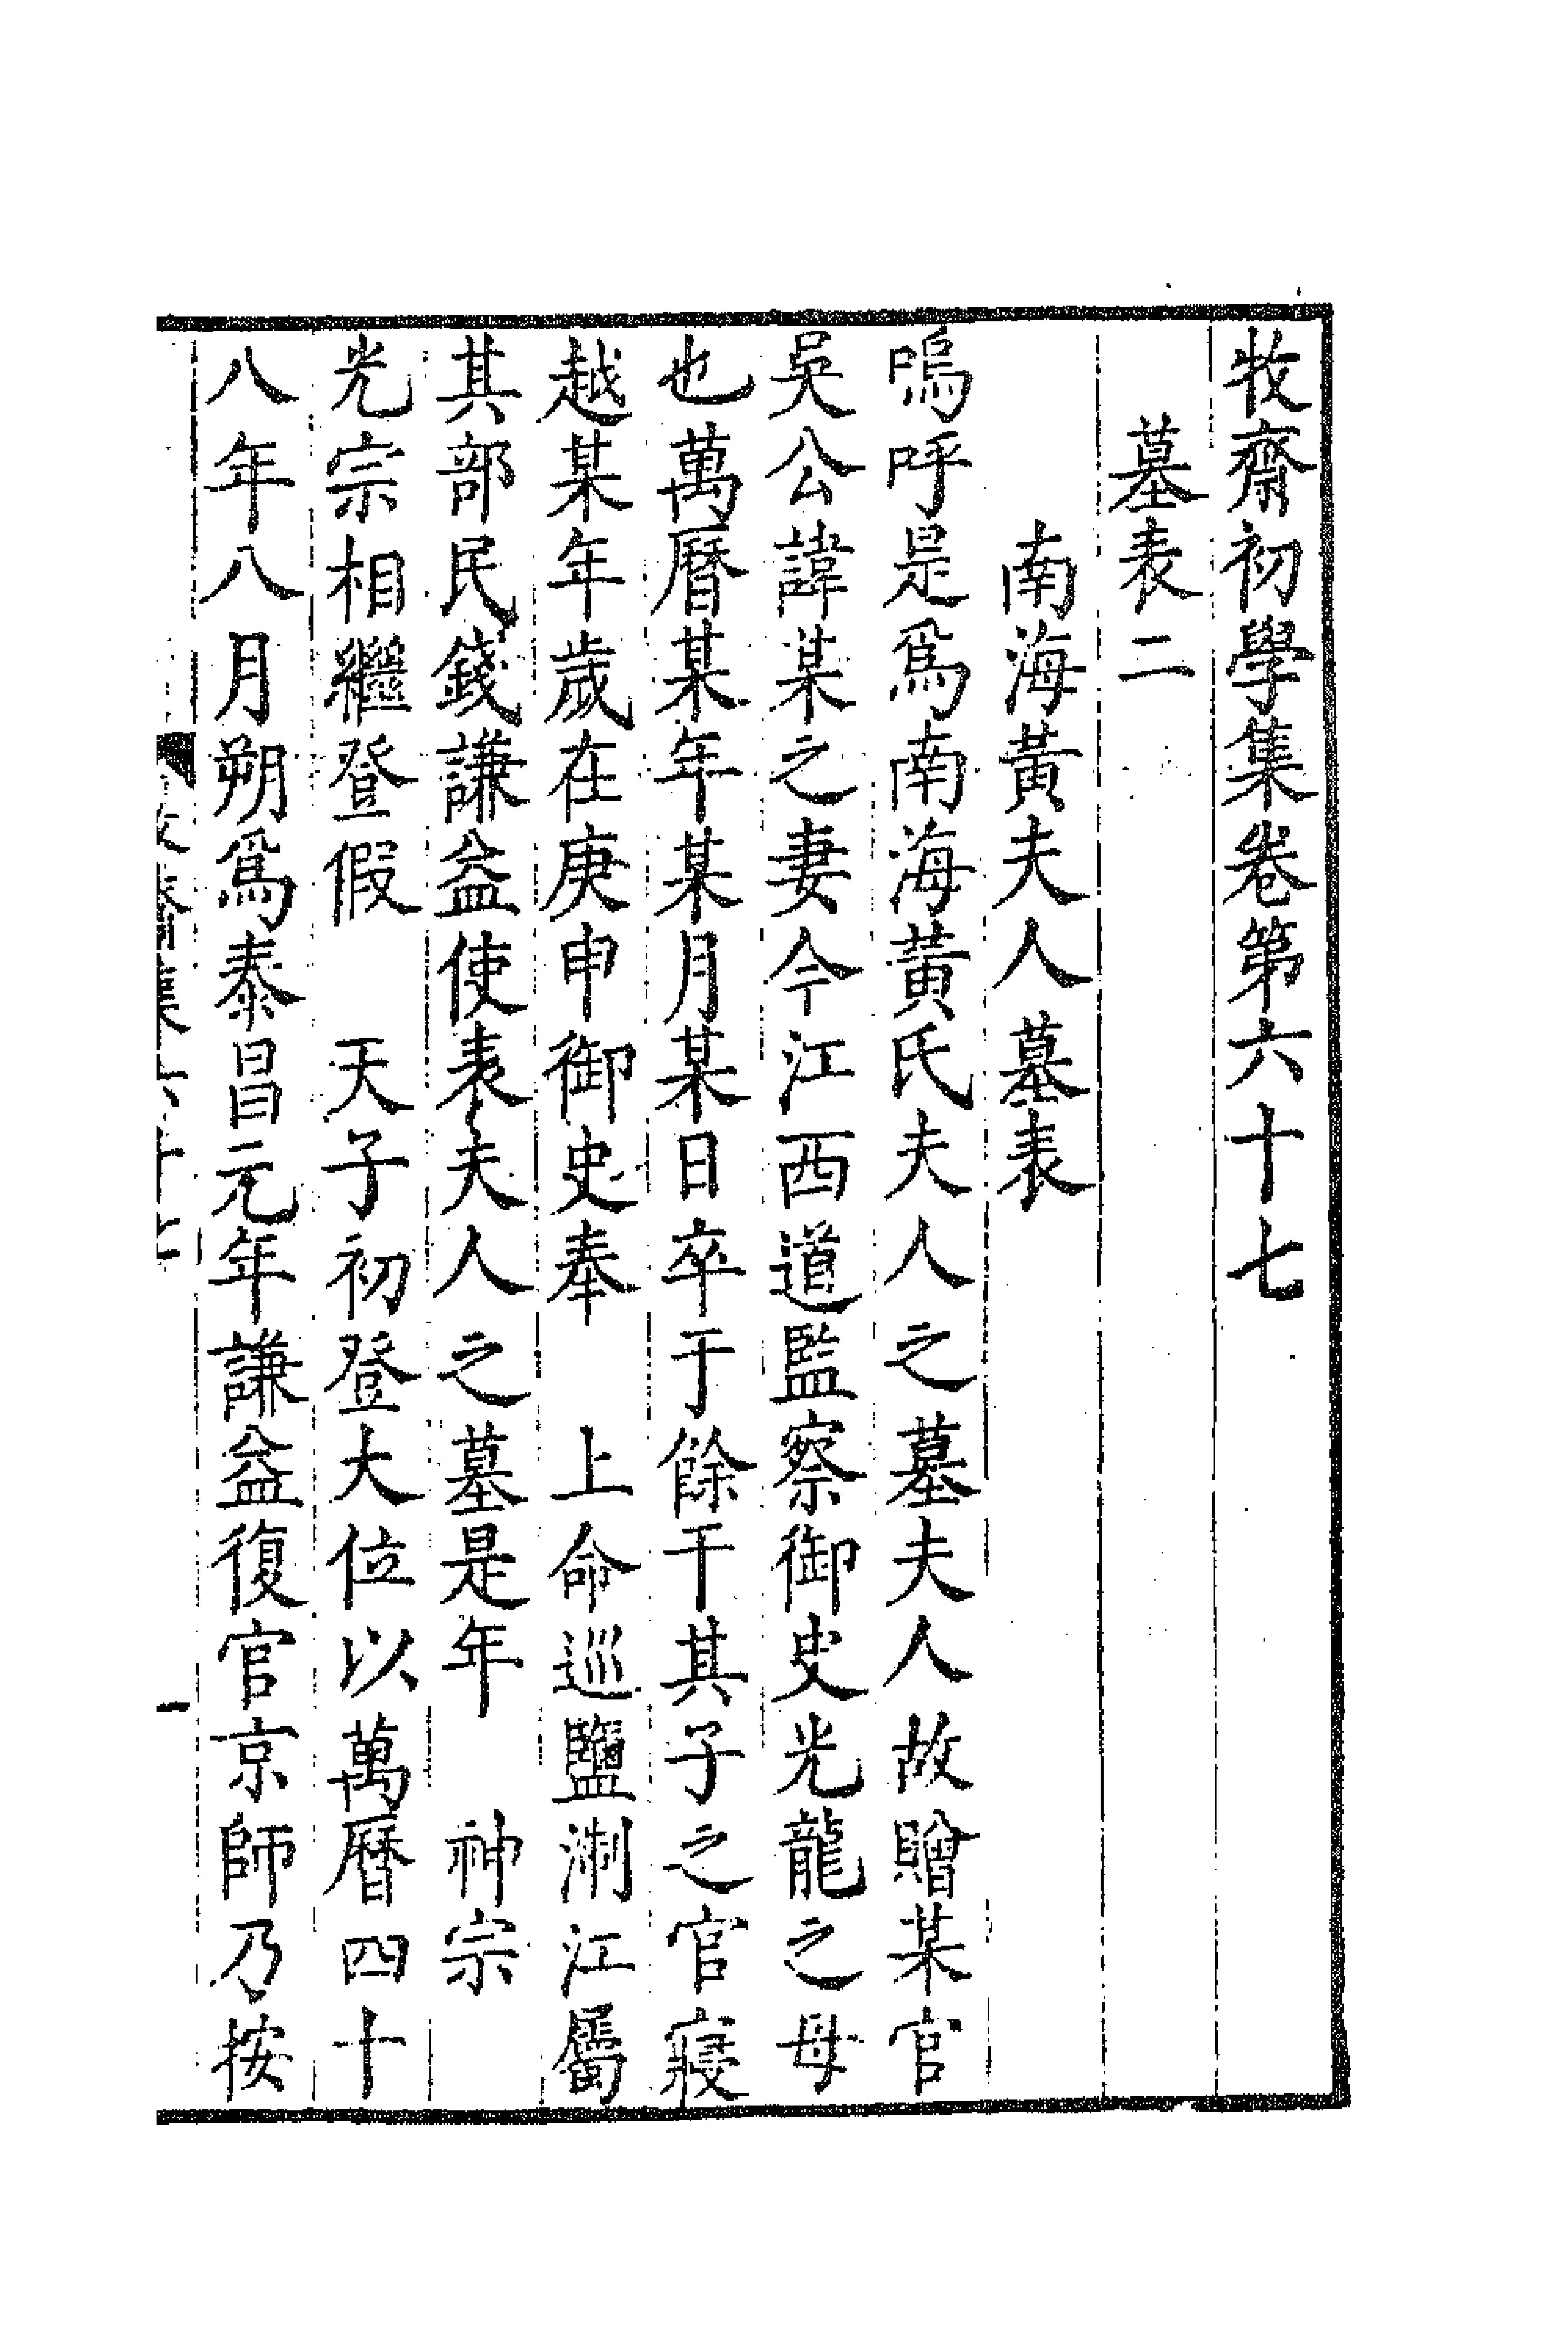 牧齋初學集卷第六十七
墓表二
南海黃夫人墓表
嗚呼是爲南海黃氏夫人之墓夫人故贈某官
吳公諱某之妻今江西道監察御史光龍之母
也萬曆某年某月某日卒于餘干其子之官寢
越某年歲在庚申御史奉　上命巡鹽淛江屬
其部民錢謙益使表夫人之墓是年　神宗
光宗相繼登假　天子初登大位以萬曆四十
八年八月朔爲泰昌元年謙益復官京師乃按